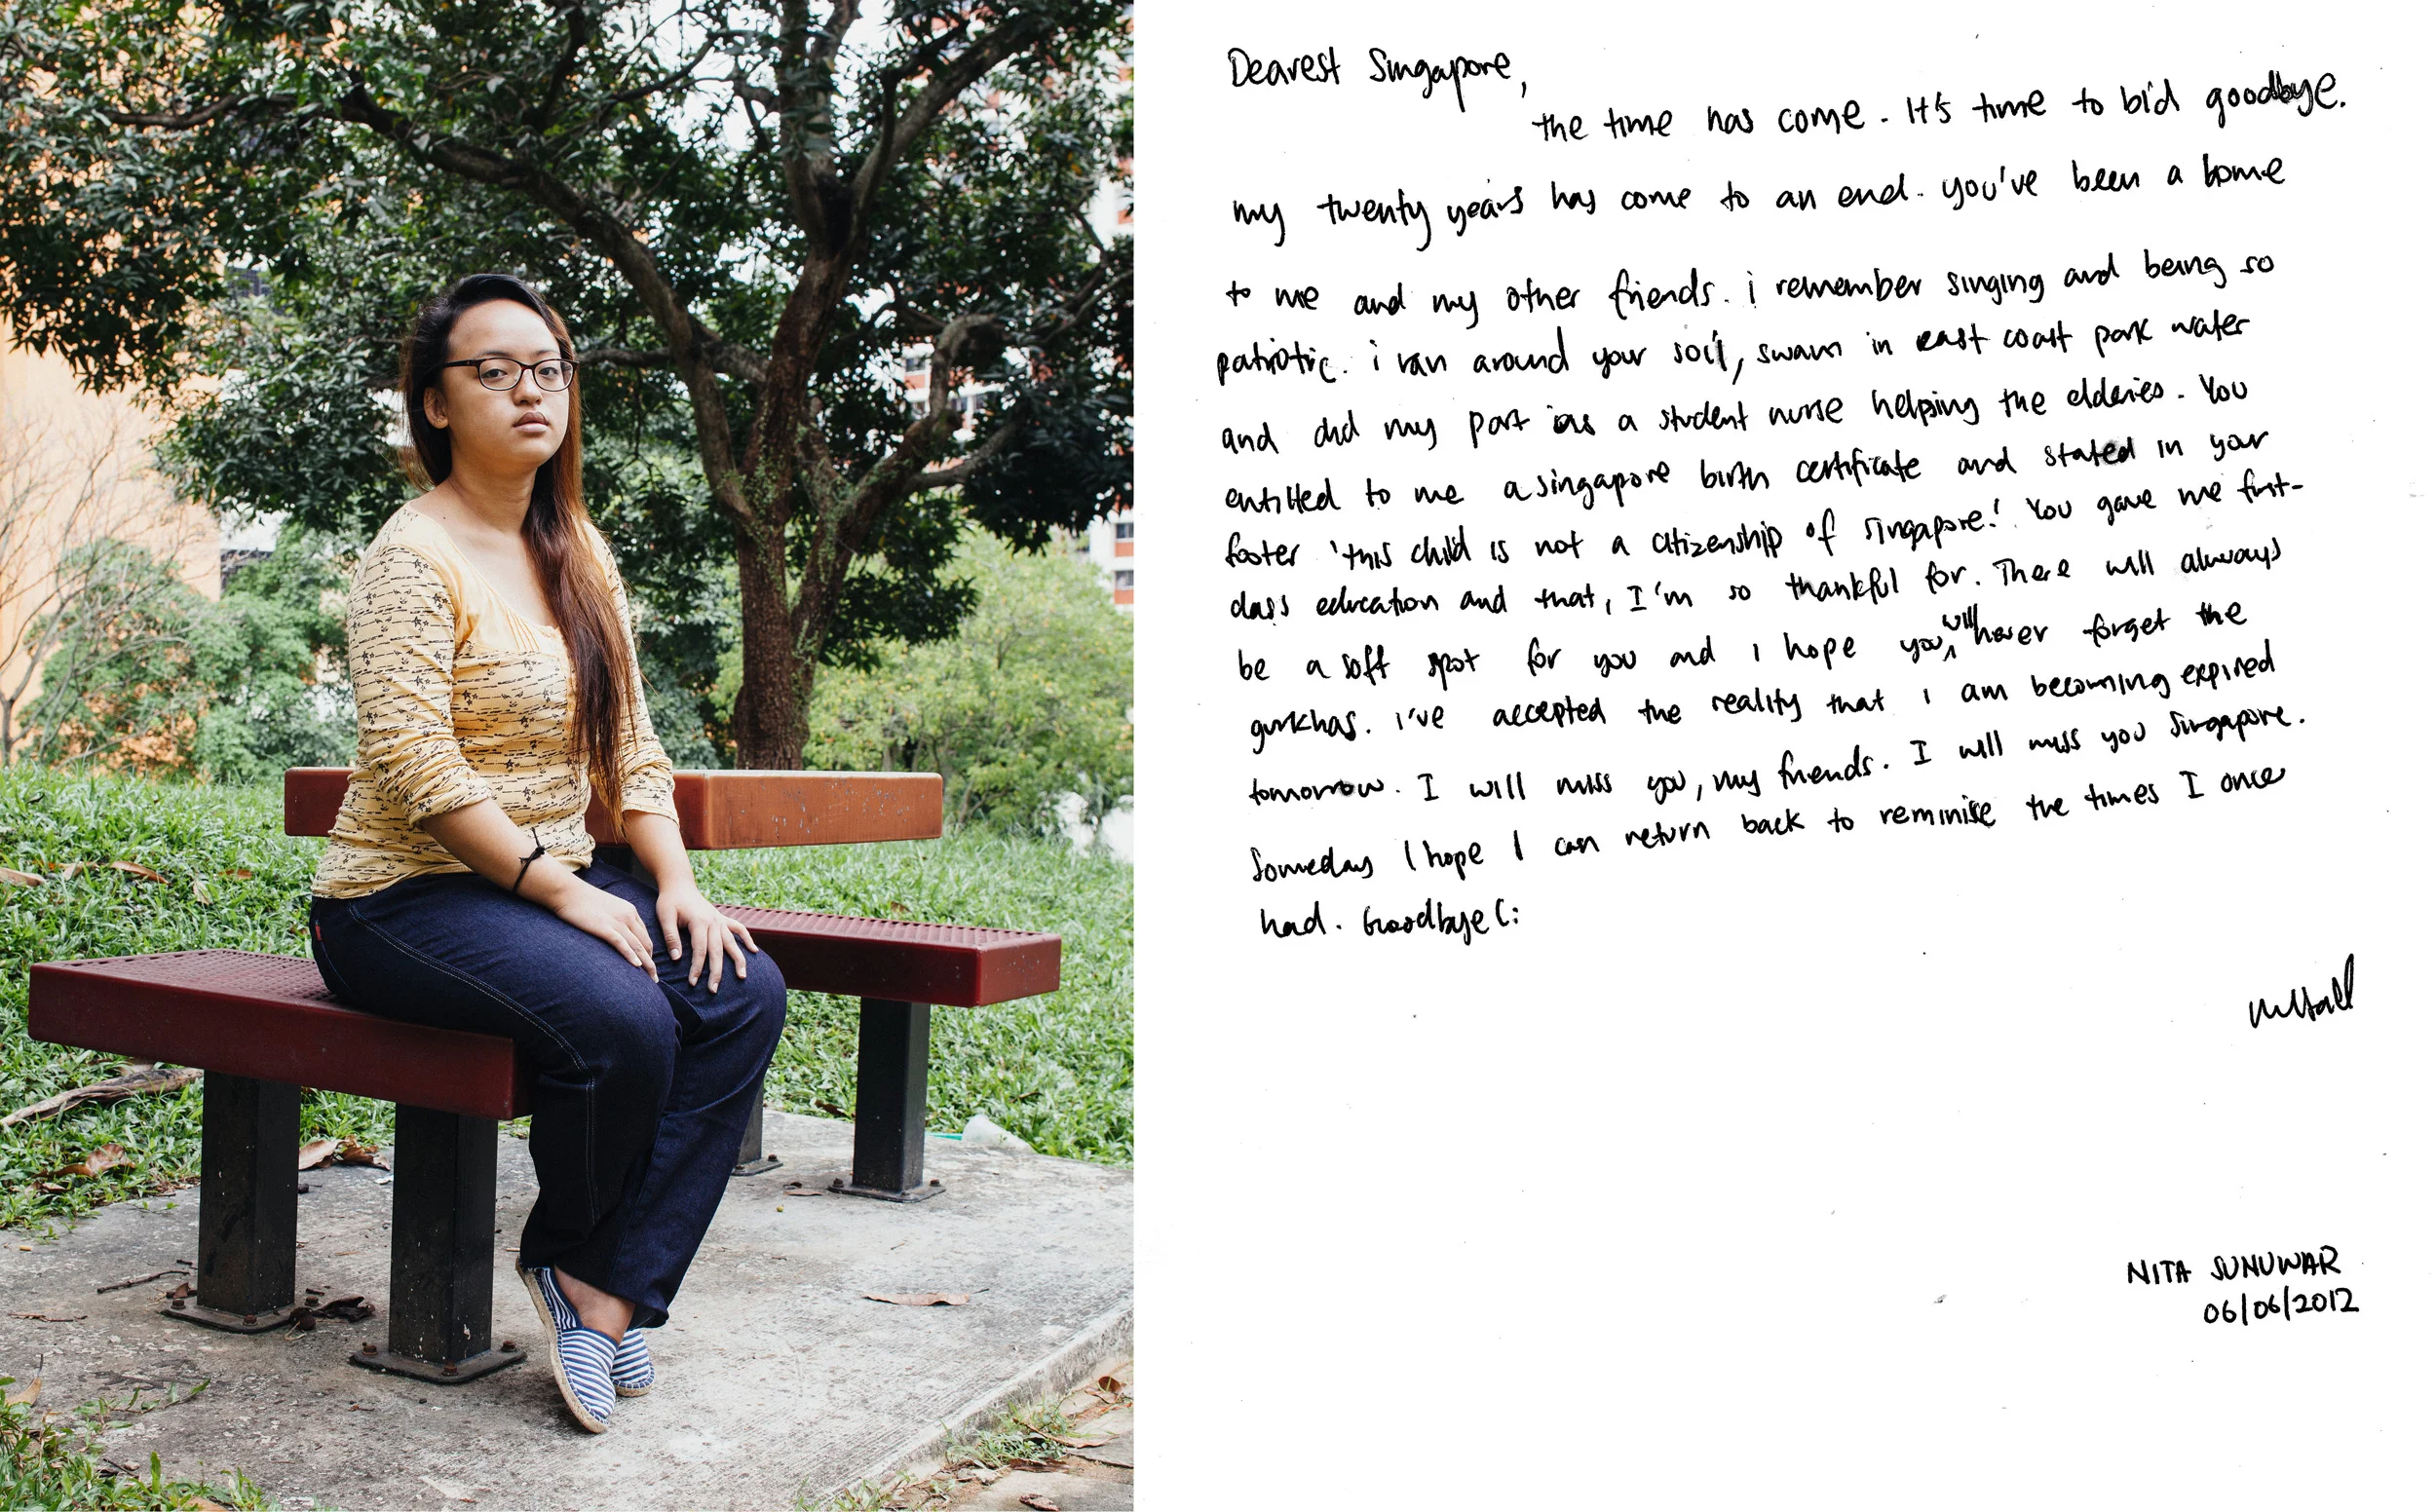 Dearest Singapore,
the time has come. It's time to bid goodbye.
my twenty years has come to an end. you've been a home
to me and my other friends. i remember singing and being so
patriotic. i ran around your soil, swam in east coast park water
and did my part as a student nurse helping the elderies. You
entitled to me a singapore birth certificate and stated in your
footer 'this child is not a citizenship of singapore.' You gave me first-
class education and that, I'm so thankful for. There will always
be a soft spot for you and i hope you will never forget the
gurkhas. i've accepted the reality that i am becoming expired
tomorrow. I will miss you, my friends. I will miss you Singapore.
Someday I hope I can return back to reminise the times I once
had. Goodbye (:
NITA SUNUWAR
06/06/2012